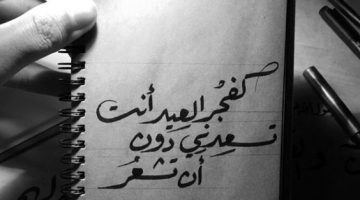 كفجْر العِيد أنت
تسعِدني دون
أن تشعُر